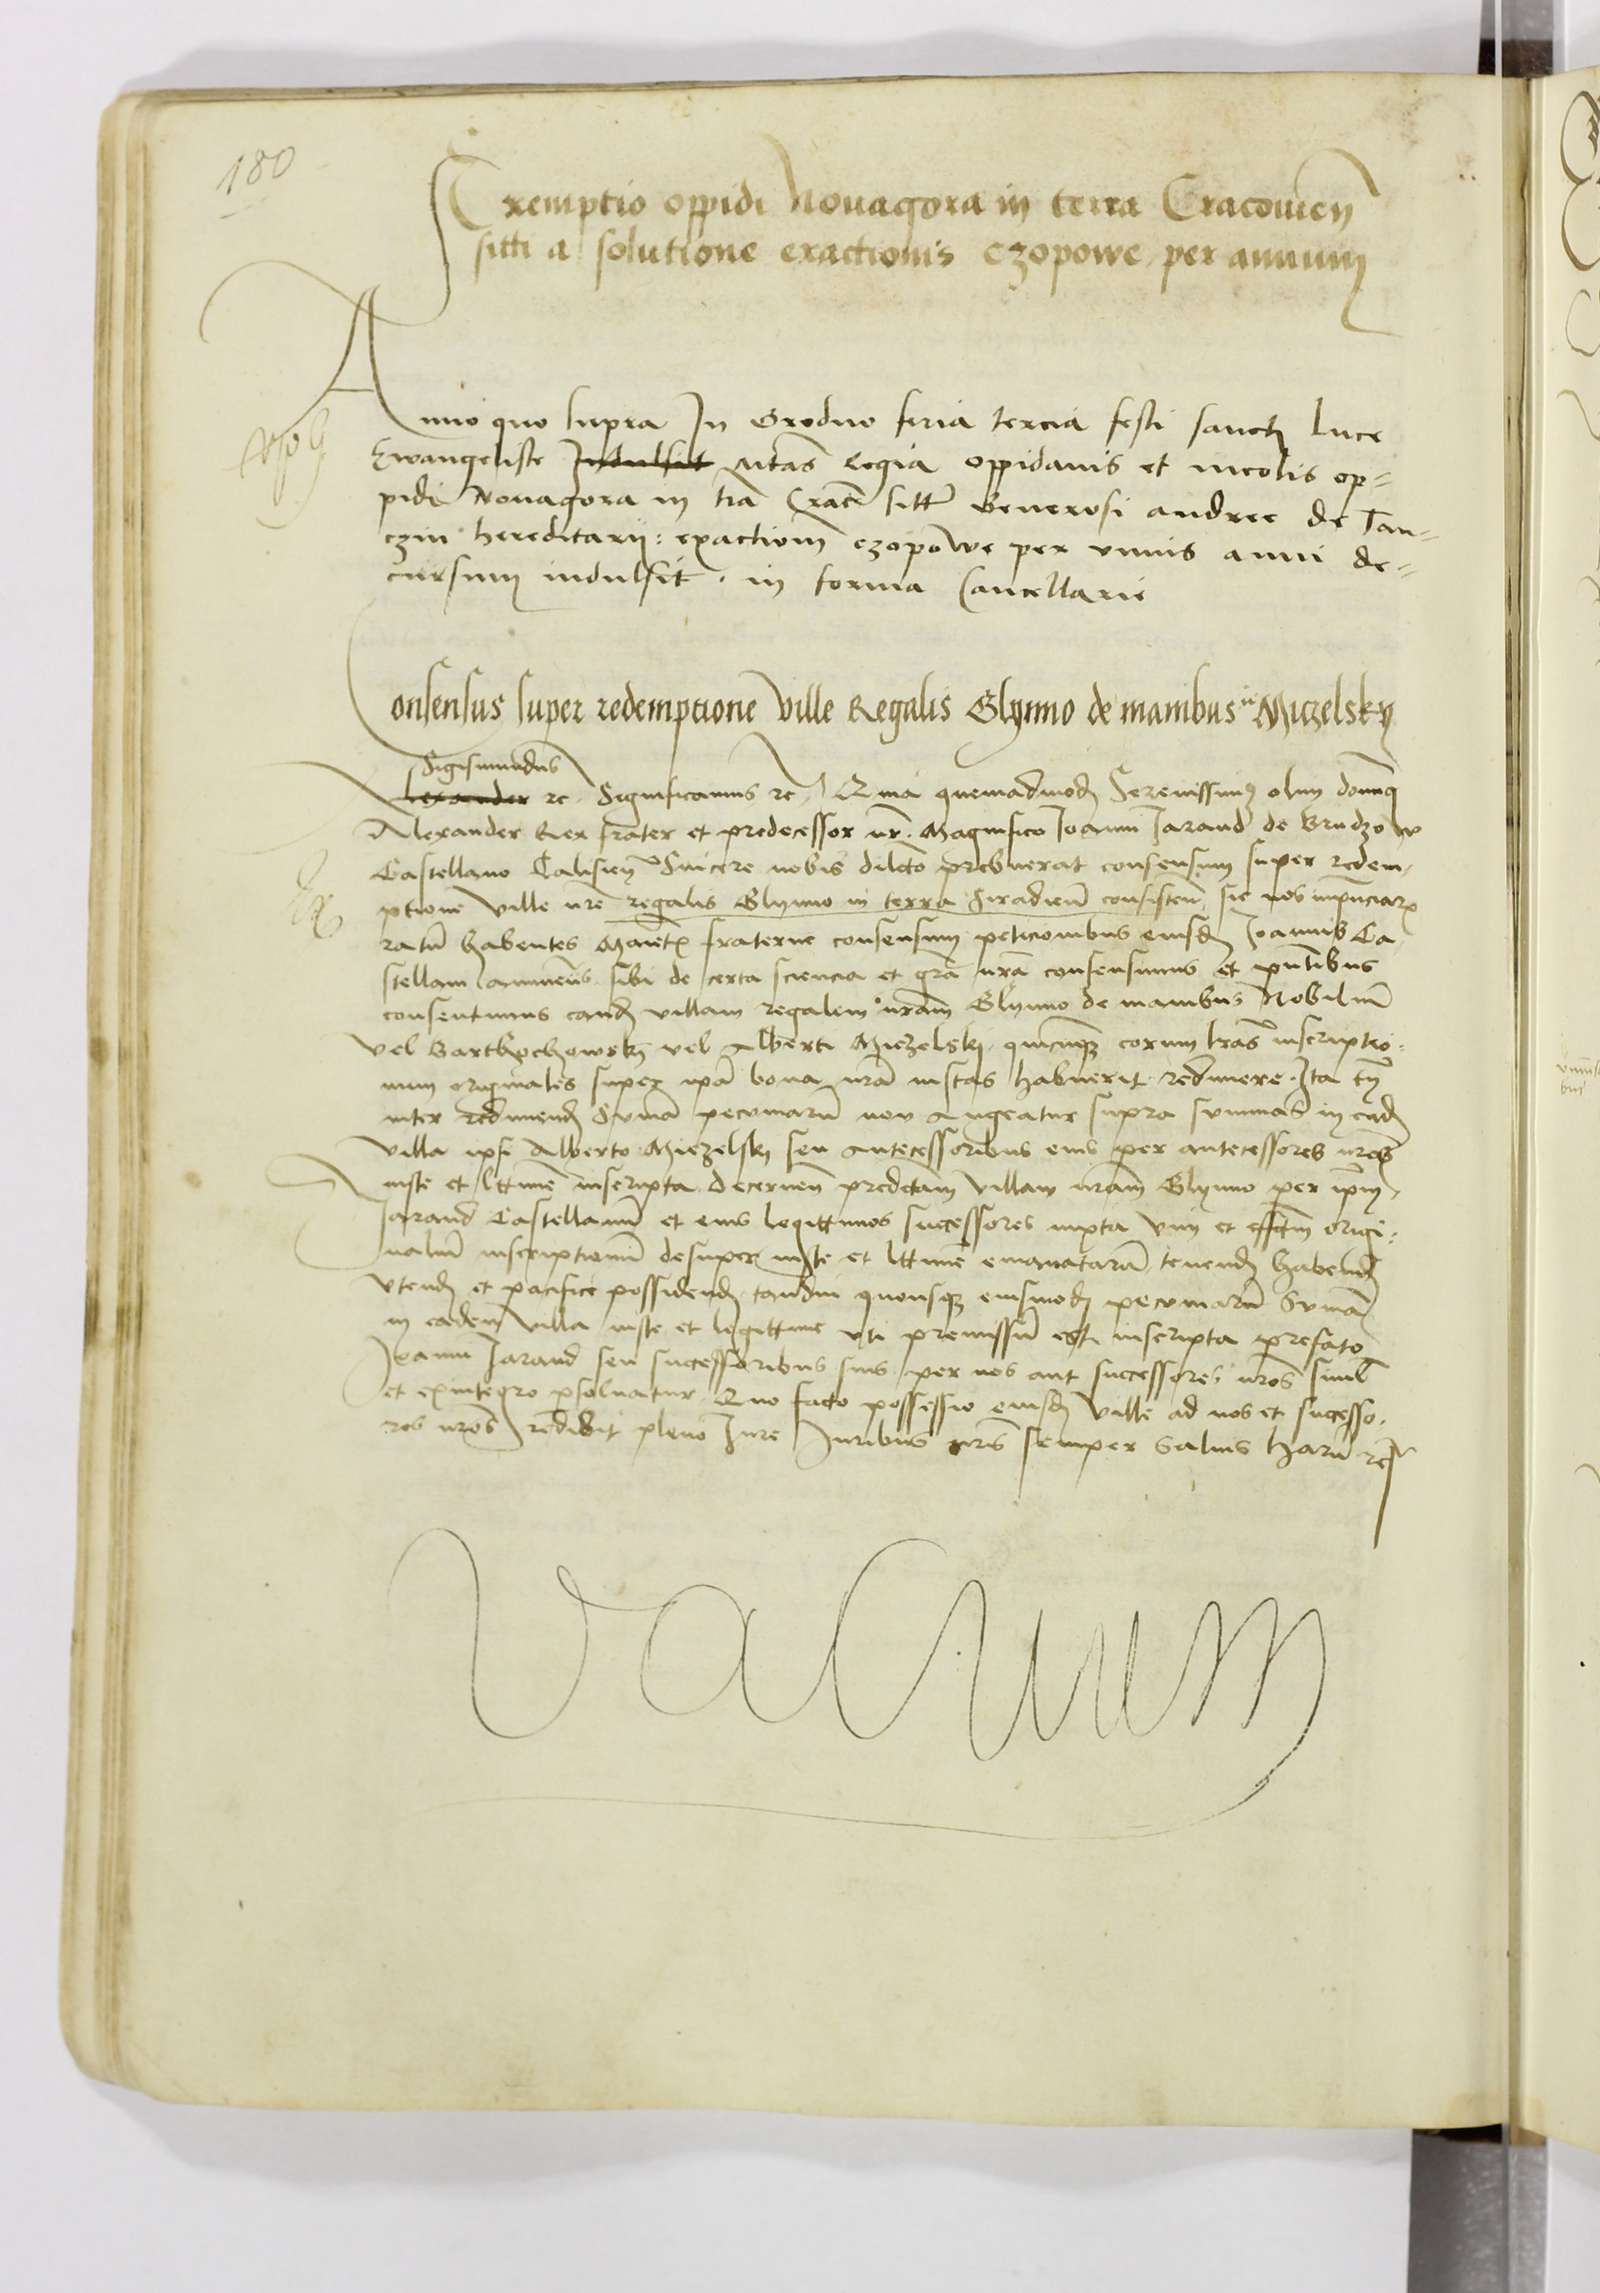 180
Exemptio oppidi Nouagora in terra Cracouien
sitti a solutione exactionis czopowe per annum
Anno quo supra In Grodno feria tercia festi sancti Luce
Ewangeliste Indulsit Mtas Regia oppidanis et incolis op-
pidi Nouagora in tra Crace sitti Generosi Andree de Tan-
czin hereditarii: exactionem czopowe per vnius anni de-
cursum indulsit. in forma Cancellarie
Consensus super redemptione ville Regalis Glynno de manibus Miczelsky
Sigismundus
Alexander rc. Significamus rc. Quia quemadmodum Serenissimus olim domnus
Alexander Rex frater et predecessor nr. Magnifico Joanni Jarand de Brudzow
Castellano Calisien Sincere nobis dilecto prebuerat consensum super redem-
ptione ville nre regalis Glynno in terra Siradien consisten sic nos
ratum habentes Maiestatis fraterne consensum peticionibus eiusdem Joannis Ca-
stellani annuentes sibi de certa sciencia et gra nra consensimus et pntibus
consentimus eandem villam regalem nram Glynno de manibus Nobilium
vel Bartkochowsky vel Alberti Miczelski quicumque eorum lras inscriptio-
num originales super ipa bona nra iustas habuerit redimere. Ita tn
inter redimendum Summa pecuniarum non augeatur supra summas in eadem
villa ipsi Alberto Miczelsky seu antecessoribus eius per antecessores nros
iuste et lttime inscripta. Decernen predictam villam nram Glynno per ipm
Jarand Castellanum et eius legittimos successores iuxta vim et effectum origi-
nalium inscriptionum desuper iuste et lttime emanatarum tenendam habendam
vtendam et pacifice possidendam tamdiu quousque eiusmodi pecuniarum Summa
in eadem villa iuste et legittime vti premissum est inscripta prefato
Joanni Jarand seu successoribus suis per nos aut successores nros simul
et exintegro psoluatur. Quo facto possessio eiusdem ville ad nos et successo-
res nros redibit pleno Iure Iuribus nris semper saluis Harum rc
vacuum